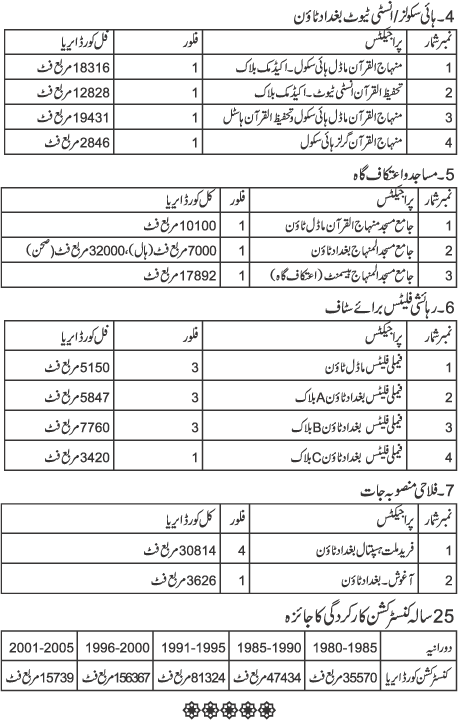 4۔ ہائی سکولز/انسٹی ٹیوٹ بغداد ٹاؤن
نمبر شمار پراجیکٹس فلور کل کورڈ ایریا
1 منہاج القرآن ماڈل ہائی سکول۔ اکیڈمک بلاک 1 18316 مربع فٹ
2 تحفیظ القرآن انسٹی ٹیوٹ۔ اکیڈمک بلاک 1 12828 مربع فٹ
3 منہاج القرآن ماڈل ہائی سکول و تحفیظ القرآن ہاسٹل 1 19431 مربع فٹ
4 منہاج القرآن گرلز ہائی سکول 1 2846 مربع فٹ
5۔ مساجد و اعتکاف گاہ
نمبر شمار پراجیکٹس فلور کل کورڈ ایریا
1 جامع مسجد منہاج القرآن ماڈل ٹاؤن 1 10100 مربع فٹ
2 جامع مسجد المنہاج بغداد ٹاؤن 1 7000 مربع فٹ (ہال)، 32000 مربع فٹ (صحن)
3 جامع مسجد المنہاج بیسمنٹ (اعتکاف گاہ) 1 17892 مربع فٹ
6۔ رہائشی فلیٹس برائے سٹاف
نمبر شمار پراجیکٹس فلور کل کورڈ ایریا
1 فیملی فلیٹس ماڈل ٹاؤن 3 5150 مربع فٹ
2 فیملی فلیٹس بغداد ٹاؤن A بلاک 3 5847 مربع فٹ
3 فیملی فلیٹس بغداد ٹاؤن B بلاک 3 7760 مربع فٹ
4 فیملی فلیٹس بغداد ٹاؤن C بلاک 1 3420 مربع فٹ
7۔ فلاحی منصوبہ جات
نمبر شمار پراجیکٹس فلور کل کورڈ ایریا
1 فرید ملت ہسپتال بغداد ٹاؤن 4 30814 مربع فٹ
2 آغوش۔ بغداد ٹاؤن 1 3626 مربع فٹ
25 سالہ کنسٹرکشن کارکردگی کا جائزہ
دورانیہ 1980-1985 1985-1990 1991-1995 1996-2000 2001-2005
کنسٹرکشن کورڈ ایریا 35570 مربع فٹ 47434 مربع فٹ 81324 مربع فٹ 156367 مربع فٹ 15739 مربع فٹ